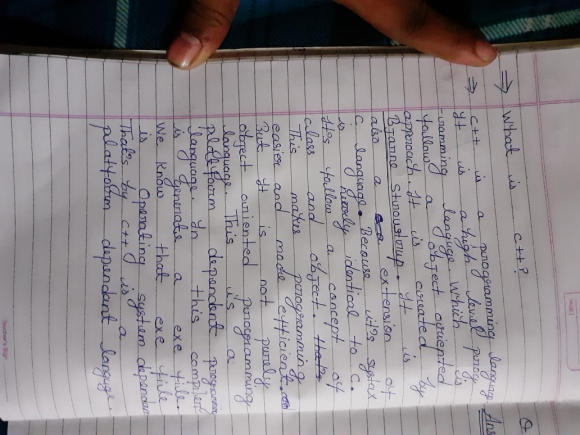 Q.
⇒ What is c++?
Ans
⇒ c++ is a programming languag
It is a high level prog
-ramming language which is
follow a object oriented
approach. It is created by
Bjarne Stroustrup. It is
also a extension of
C language. Because it's systax
is nearly identical to C.
It's follow a concept of
class and object.
This makes programming
easier and made efficient.
But it is not purely
object oriented programming
language. This is a
platform dependent programm
language. In this compiler
is generate a exe file.
We know that exe file
is Operating system dependen
That's by c++ is a
platform dependent languge.